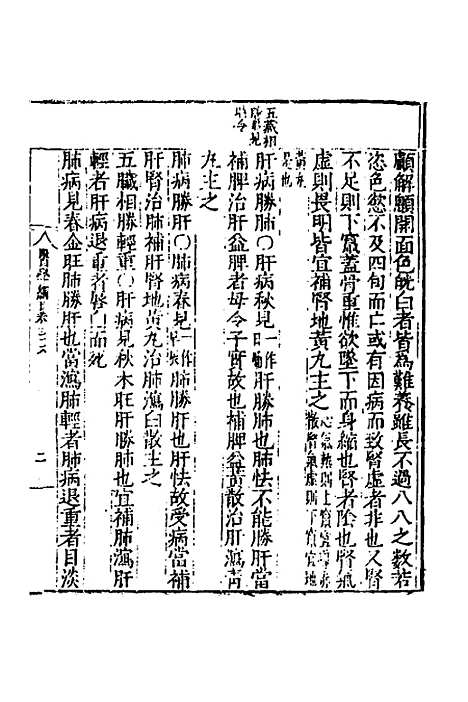 顱解顱開面色㿠白者皆為難養雖長不過八八之數若
恣色慾不及四旬而亡或有因病而致腎虛者非也又腎
不足則下竄蓋骨重惟欲墜下而身縮也腎者陰也腎氣
虛則畏明皆宜補腎地黃丸主之
心氣熱則上竄
腎氣虛則下竄宜地
黃丸
是也
五藏相
肝病勝肺〇肝病秋見一作日晡肝勝肺也肺怯不能勝肝當
補脾治肝益脾者母令子實故也補脾益黃散治肝瀉青
丸主之
肺病勝肝〇肺病春見一作早晨肺勝肝也肝怯故受病當補
肝腎治肺補肝腎地黃丸治肺瀉白散主之
五臟相勝輕重〇肝病見秋木旺肝勝肺也宜補肺瀉肝
輕者肝病退重者唇白而死
肺病見春金旺肺勝肝也當瀉肺輕者肺病退重者目淡
醫學綱目卷之三十六
二